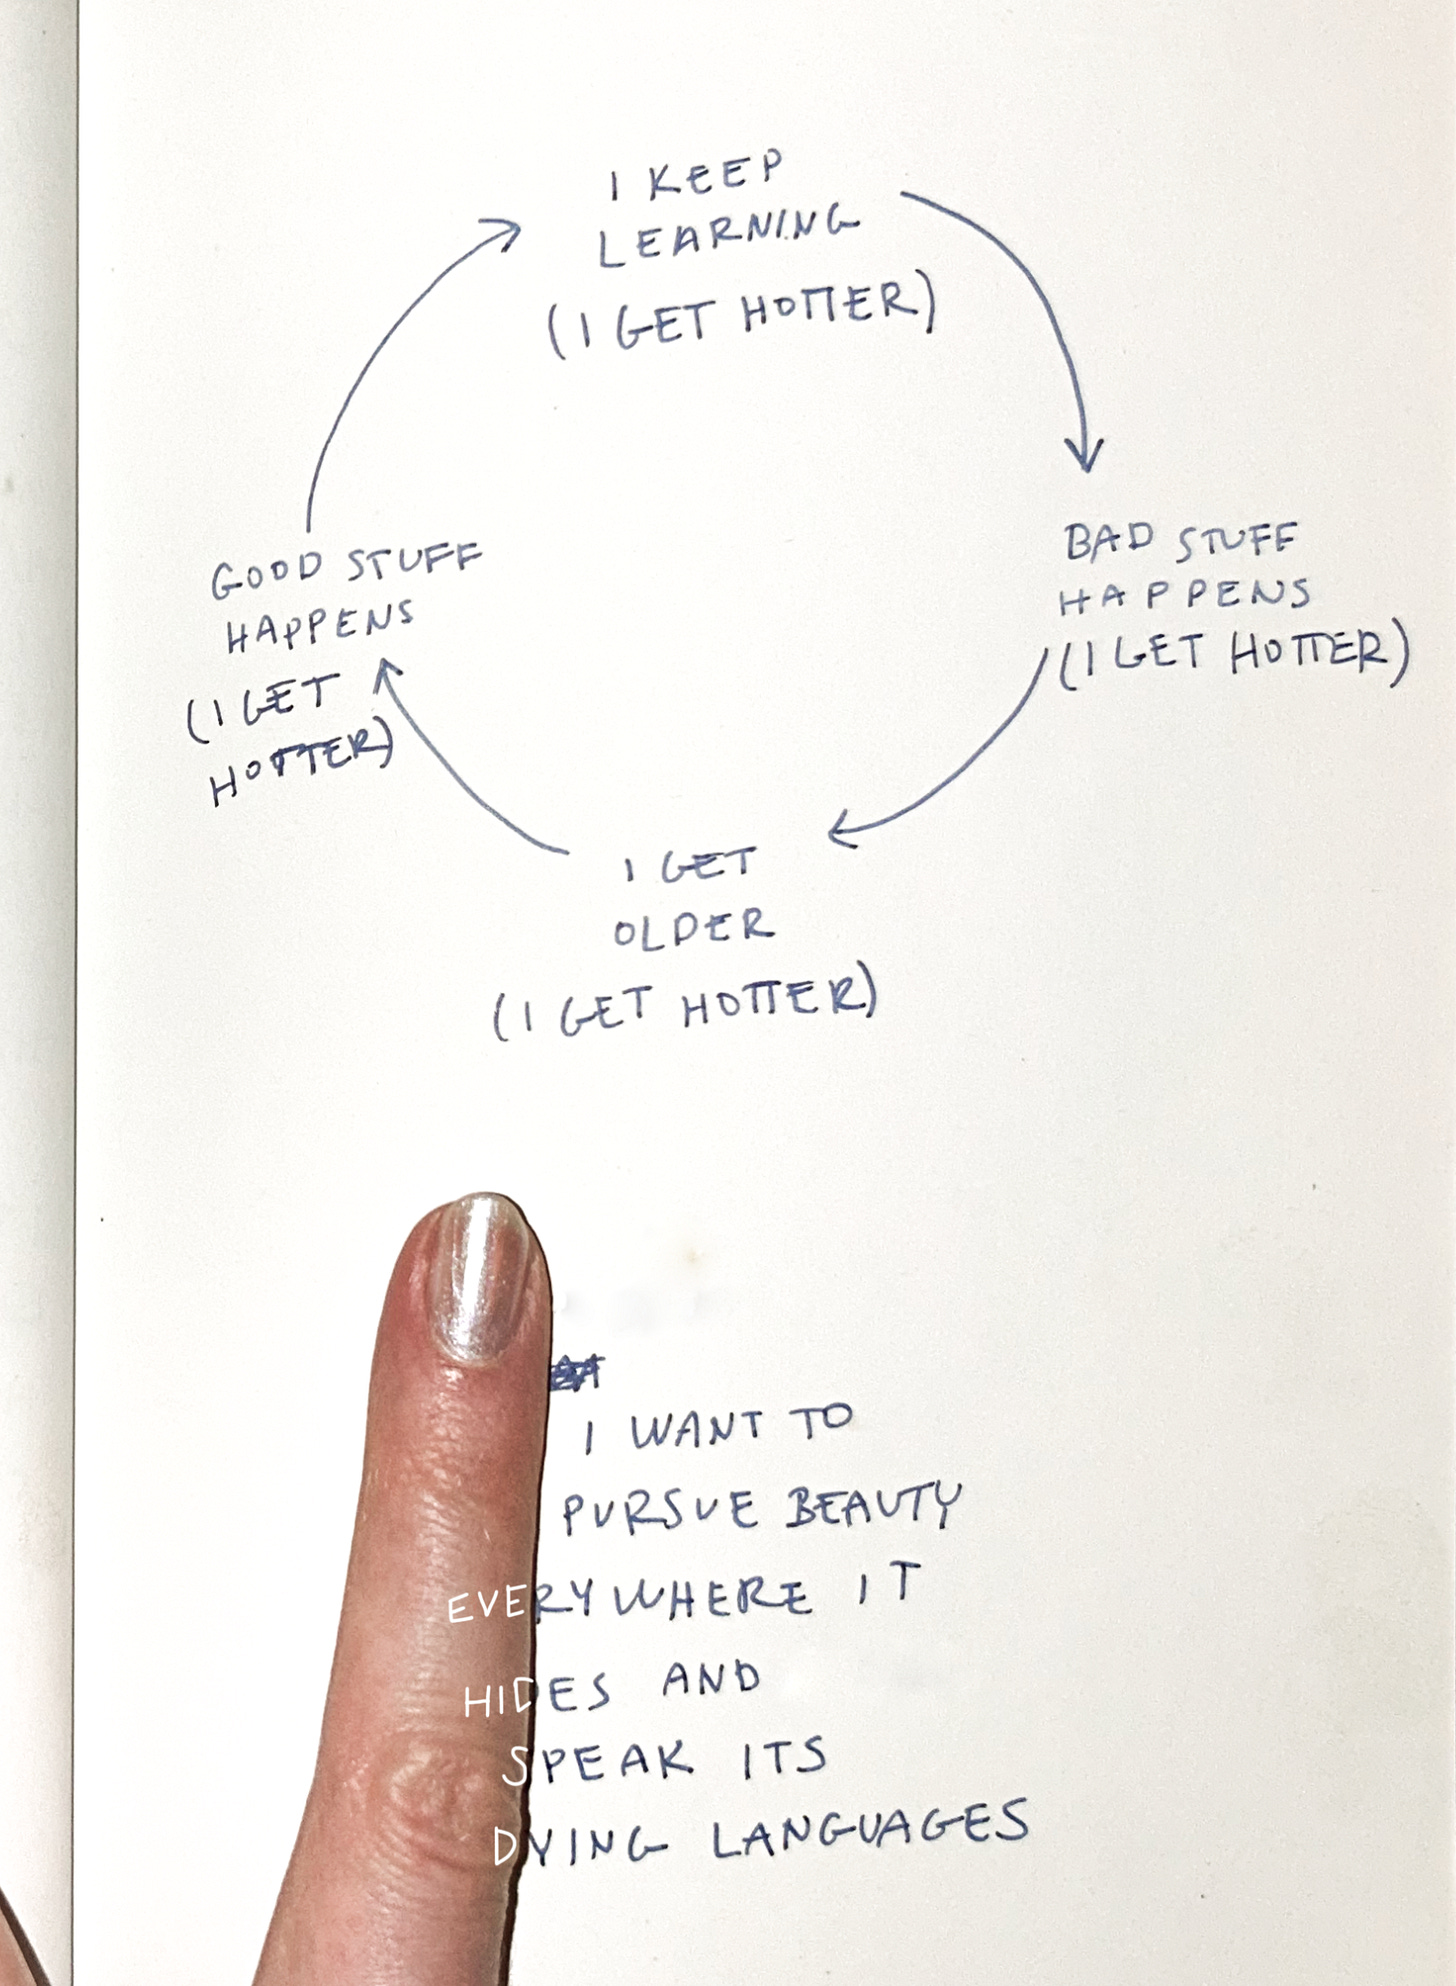 I KEEP
LEARNING
(I GET HOTTER)
BAD STUFF
HAPPENS
(I GET HOTTER)
I GET
OLDER
(I GET HOTTER)
GOOD STUFF
HAPPENS
(I GET
HOTTER)
I WANT TO
PURSUE BEAUTY
EVERYWHERE IT
HIDES AND
SPEAK ITS
DYING LANGUAGES